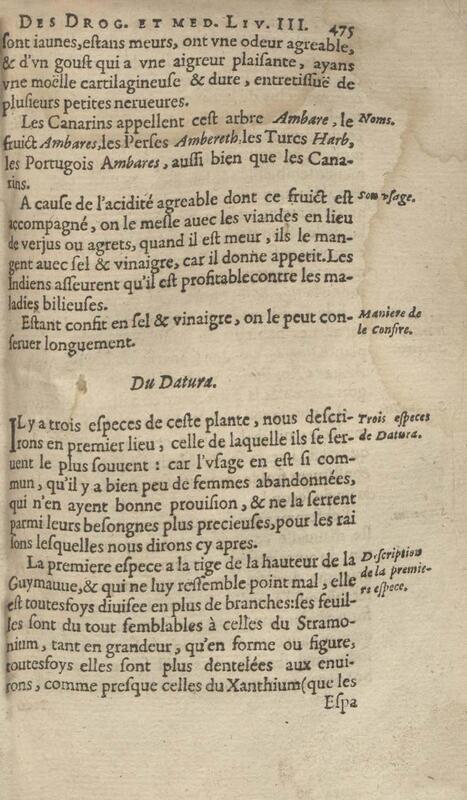 DES DROG. ET MED. LIV. III. 475
ſont iaunes, eſtans meurs, ont vne odeur agreable,
& d'vn gouſt qui a vne aigreur plaiſante, ayans
vne moëlle cartilagineuſe & dure, entretiſſuë de
pluſieurs petites nerueures.
Les Canarins appellent ceſt arbre Ambare, le
Noms.
fruict Ambares, les Perſes Ambereth, les Turcs Harb,
les Portugois Ambares, auſſi bien que les Cana-
rins.
A cauſe de l'acidité agreable dont ce fruict eſt
Son vſage.
accompagné, on le meſle auec les viandes en lieu
de verjus ou agrets, quand il eſt meur, ils le man-
gent auec ſel & vinaigre, car il donne appetit. Les
Indiens aſſeurent qu'il eſt profitable contre les ma-
ladies bilieuſes.
Eſtant confit en ſel & vinaigre, on le peut con-
Maniere de
le Confire.
ſeruer longuement.
Du Datura.
IL y a trois eſpeces de ceſte plante, nous deſcri-
Trois eſpeces
de Datura.
rons en premier lieu, celle de laquelle ils ſe ſer-
uent le plus ſouuent : car l'vſage en eſt ſi com-
mun, qu'il y a bien peu de femmes abandonnées,
qui n'en ayent bonne prouiſion, & ne la ſerrent
parmi leurs beſongnes plus precieuſes, pour les rai
ſons leſquelles nous dirons cy apres.
La premiere eſpece a la tige de la hauteur de la
Deſcription
de la premie-
re eſpece.
Guymauue, & qui ne luy reſſemble point mal, elle
eſt toutesfoys diuiſee en plus de branches: ſes feuil-
les ſont du tout ſemblables à celles du Stramo-
nium, tant en grandeur, qu'en forme ou figure,
toutesfoys elles ſont plus dentelées aux enui-
rons, comme preſque celles du Xanthium (que les
Eſpa